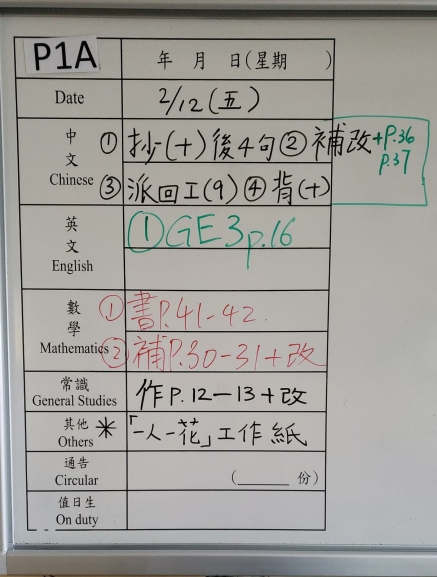 P1A
年 月 日(星期 )
Date
2/12(五)
中文
Chinese
①抄(十)後4句②補改+P.36
P.37
③派回工(9)④背(十)
英文
English
①GE3p.16
數學
Mathematics
①書P.41-42.
②補P.30-31+改
常識
General Studies
作P.12-13+改
其他
Others
*「一人一花」工作紙
通告
Circular
(______份)
值日生
On duty